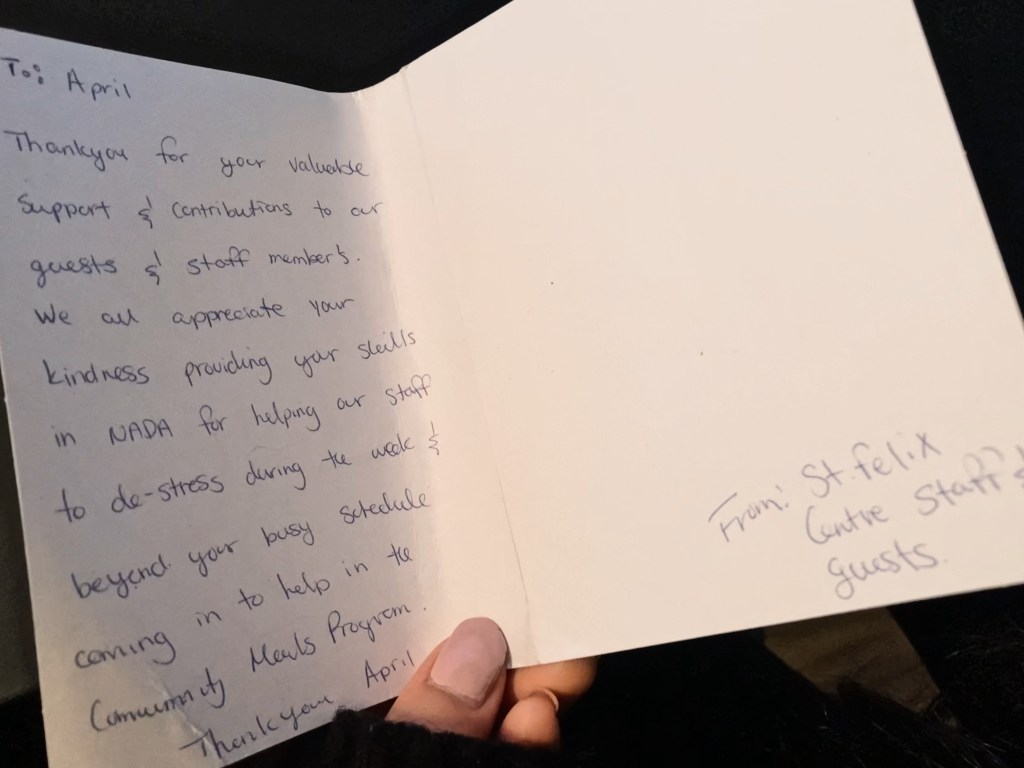 To: April
Thankyou for your valuable
Support & Contributions to our
guests & staff members.
We all appreciate your
kindness providing your skills
in NADA for helping our staff
to de-stress during the week &
beyond your busy schedule
coming in to help in the
Community Meals Program.
Thankyou April
From: St. felix
Centre Staff &
guests.